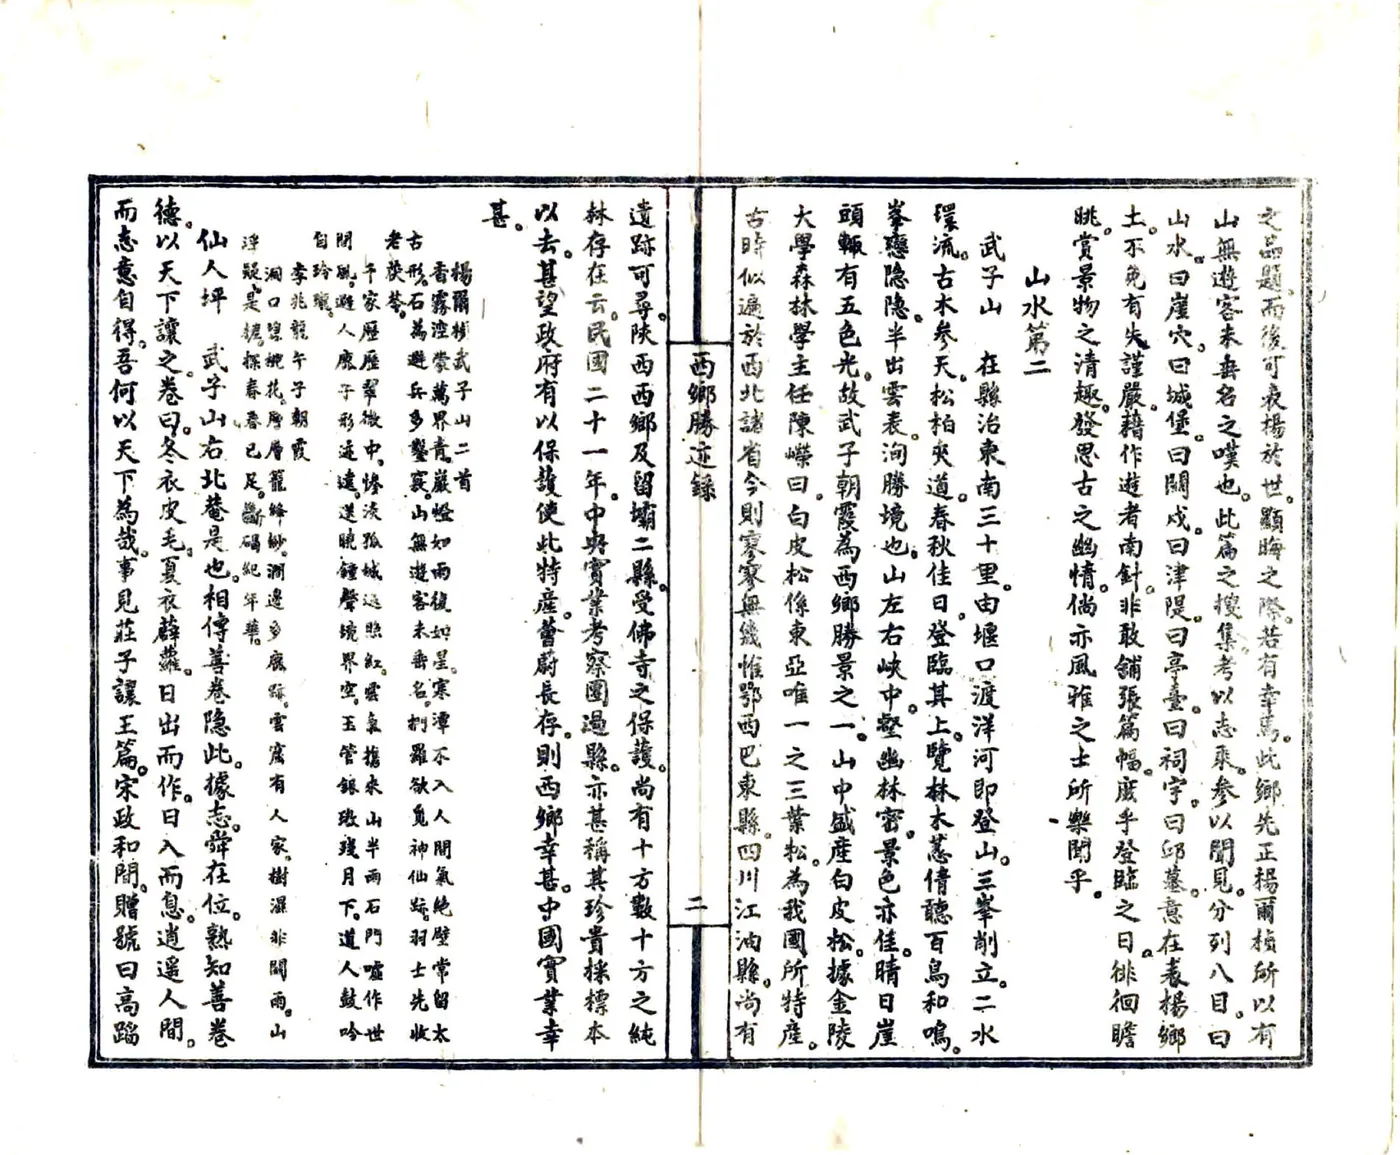 之品題。而後可表揚於世。顯晦之際。若有幸焉。此鄉先正楊爾楨所以有
山無遊客未垂名之嘆也。此篇之搜集。考以志乘。參以聞見。分列八目。曰
山水。曰崖穴。曰城堡。曰關戍。曰津隄。曰亭臺。曰祠宇。曰邱墓。意在表楊鄉
土。不免有失謹嚴。藉作遊者南針。非敢舖張篇幅。庶乎登臨之日。徘徊瞻
眺。賞景物之清趣。發思古之幽情。倘亦風雅之士所樂聞乎。
山水第二
武子山　在縣治東南三十里。由堰口渡洋河即登山。三峯削立。二水
環流。古木參天。松柏夾道。春秋佳日。登臨其上。覽林木蔥倩。聽百鳥和鳴。
峯巒隐隐。半出雲表。洵勝境也。山左右峽中。壑幽林密。景色亦佳。晴日崖
頭輒有五色光。故武子朝霞為西鄉勝景之一。山中盛產白皮松。據金陵
大學森林學主任陳嶸曰。白皮松係東亞唯一之三葉松。為我國所特產。
古時似遍於西北諸省。今則寥寥無幾。惟鄂西巴東縣。四川江油縣。尚有
西鄉勝迹錄
二
遺跡可尋。陝西西鄉及留壩二縣。受佛寺之保護。尚有十方數十方之純
林存在云。民國二十一年。中央實業考察團過縣。亦甚稱其珍貴。採標本
以去。甚望政府有以保護。使此特產。薈蔚長存。則西鄉幸甚。中國實業幸
甚。
楊爾楨武子山二首
香霧溟濛萬界青。巖燈如雨復如星。寒潭不入人間氣。絕壁常留太
古形。石為避兵多鑿竅。山無遊客未垂名。捫蘿欲覓神仙跡。羽士先收
老茯苓。
千家歷歷翠微中。慘淡孤城返照紅。雲氣攜來山半雨。石門噓作世
間風。避人鹿子形逾遠。送曉鐘聲境界空。玉管銀璈殘月下。道人鼓吟
自玲瓏。
李兆龍午子朝霞
洞口碧桃花。層層籠絳紗。澗邊多鹿跡。雲窩有人家。樹濕非關雨。山
浮疑是槎。探春春已足。斷碣紀年華。
仙人坪　武子山右北菴是也。相傳善卷隐此。據志。舜在位。熟知善卷
德。以天下讓之。卷曰。冬衣皮毛。夏衣薜蘿。日出而作。日入而息。逍遥人間。
而志意自得。吾何以天下為哉。事見莊子讓王篇。宋政和間。贈號曰高蹈